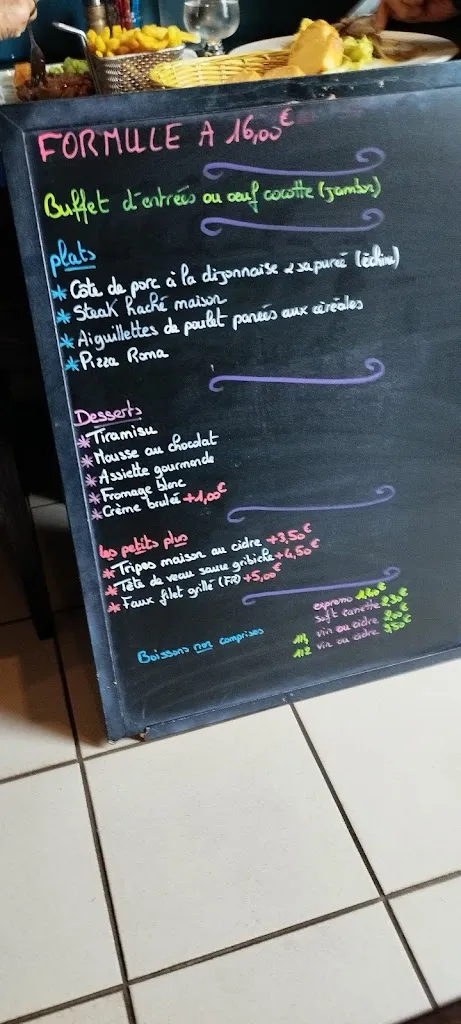 FORMULE A 16,00€
Buffet d'entrées ou oeuf cocotte (jambon)
plats
* Côte de porc à la dijonnaise & sa pureé (échine)
* Steak haché maison
* Aiguillettes de poulet panées aux céréales
* Pizza Roma
Desserts
* Tiramisu
* Mousse au chocolat
* Assiette gourmande
* Fromage blanc
* Crème bruleé +1,00€
Les petits plus
* Tripes maison au cidre +3,50€
* Tête de veau sauce gribiche +4,50€
* Faux filet grillé (FR) +5,00€
Boissons non comprises
expresso 1,40€
soft canette 2,30€
1/4 vin ou cidre 2,00€
1/2 vin ou cidre 3,50€